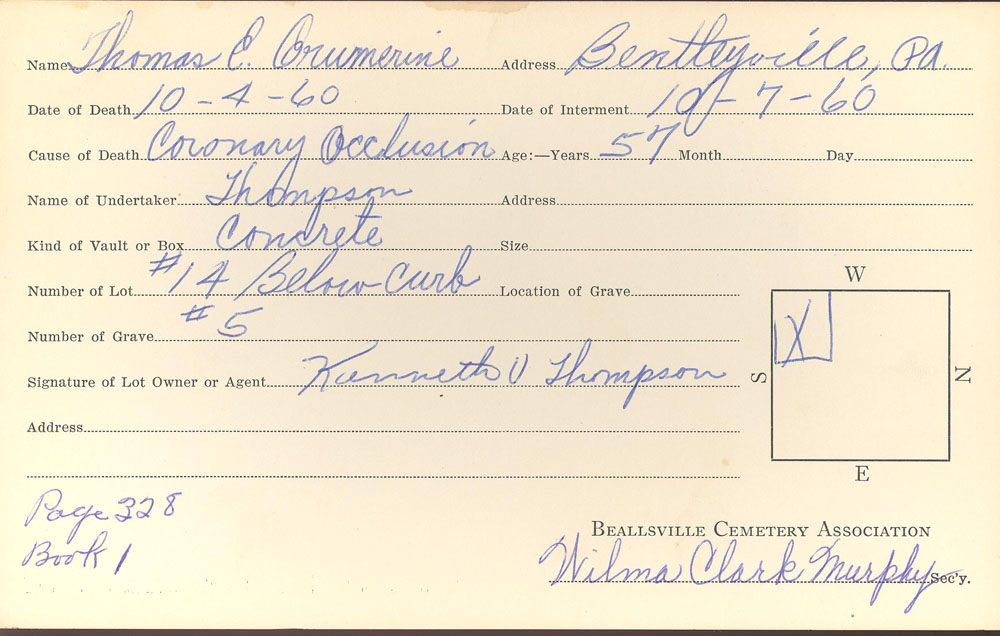 Name Thomas E. Crumerine Address Bentleyville, PA.
Date of Death 10-4-60 Date of Interment 10-7-60
Cause of Death Coronary Occlusion Age:—Years 57 Month Day
Name of Undertaker Thompson Address
Kind of Vault or Box Concrete Size
Number of Lot #14 Below Curb Location of Grave
W
Number of Grave #5
X
Signature of Lot Owner or Agent Kenneth V Thompson
S N
Address
E
Page 328
Book 1
BEALLSVILLE CEMETERY ASSOCIATION
Wilma Clark Murphy Sec'y.